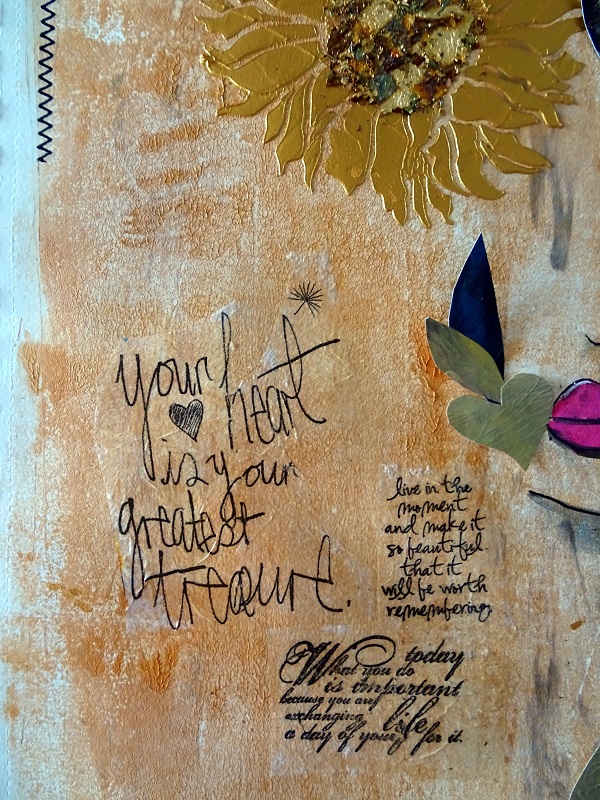 your heart
is your
greatest
treasure.
live in the
moment
and make it
so beautiful
that it
will be worth
remembering
What you do today
is important
because you are
exchanging life
a day of your for it.